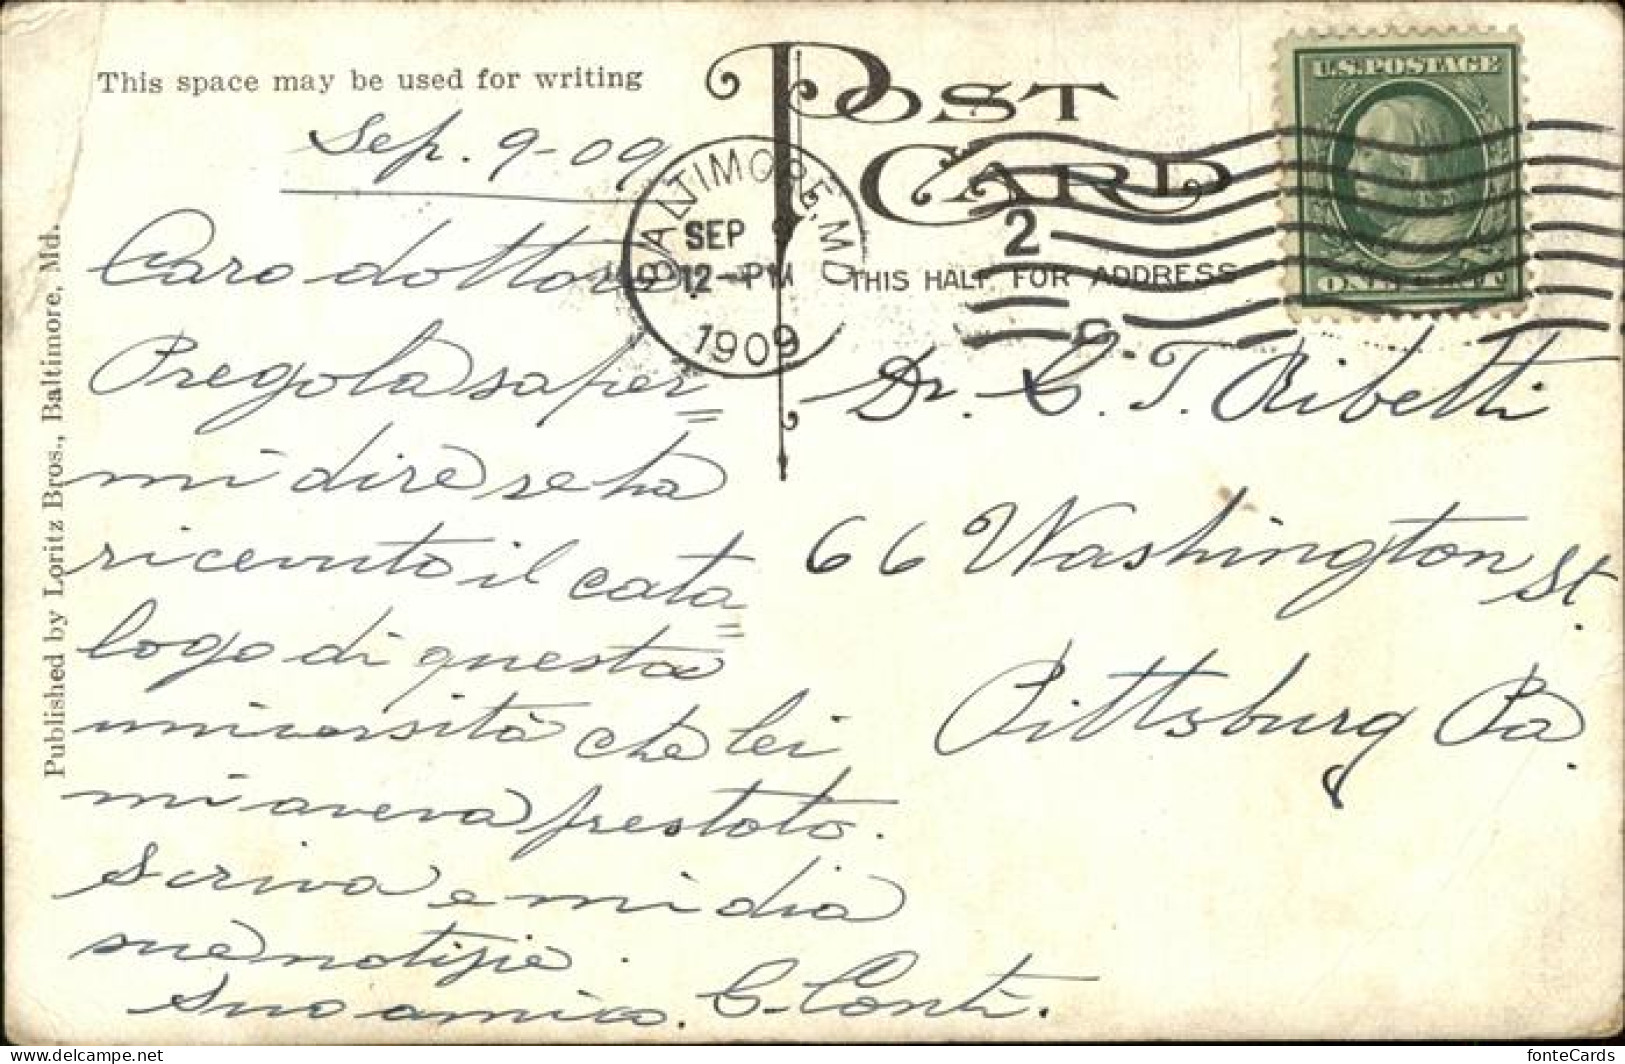 This space may be used for writing
POST CARD
U.S. POSTAGE
ONE CENT
Sep. 9-09
BALTIMORE, MD.
SEP 9
12-PM
1909
2
THIS HALF FOR ADDRESS
Published by Loritz Bros., Baltimore, Md.
Caro dottore.
Prego la saper=
mi dire se ha
ricevuto il cata
=
logo di questa
università che lei
mi aveva prestato.
Scriva e mi dia
sue notizie.
Suo amico. C. Conti.
Dr. C. T. Ribetti
66 Washington St.
Pittsburg Pa.
fonteCards